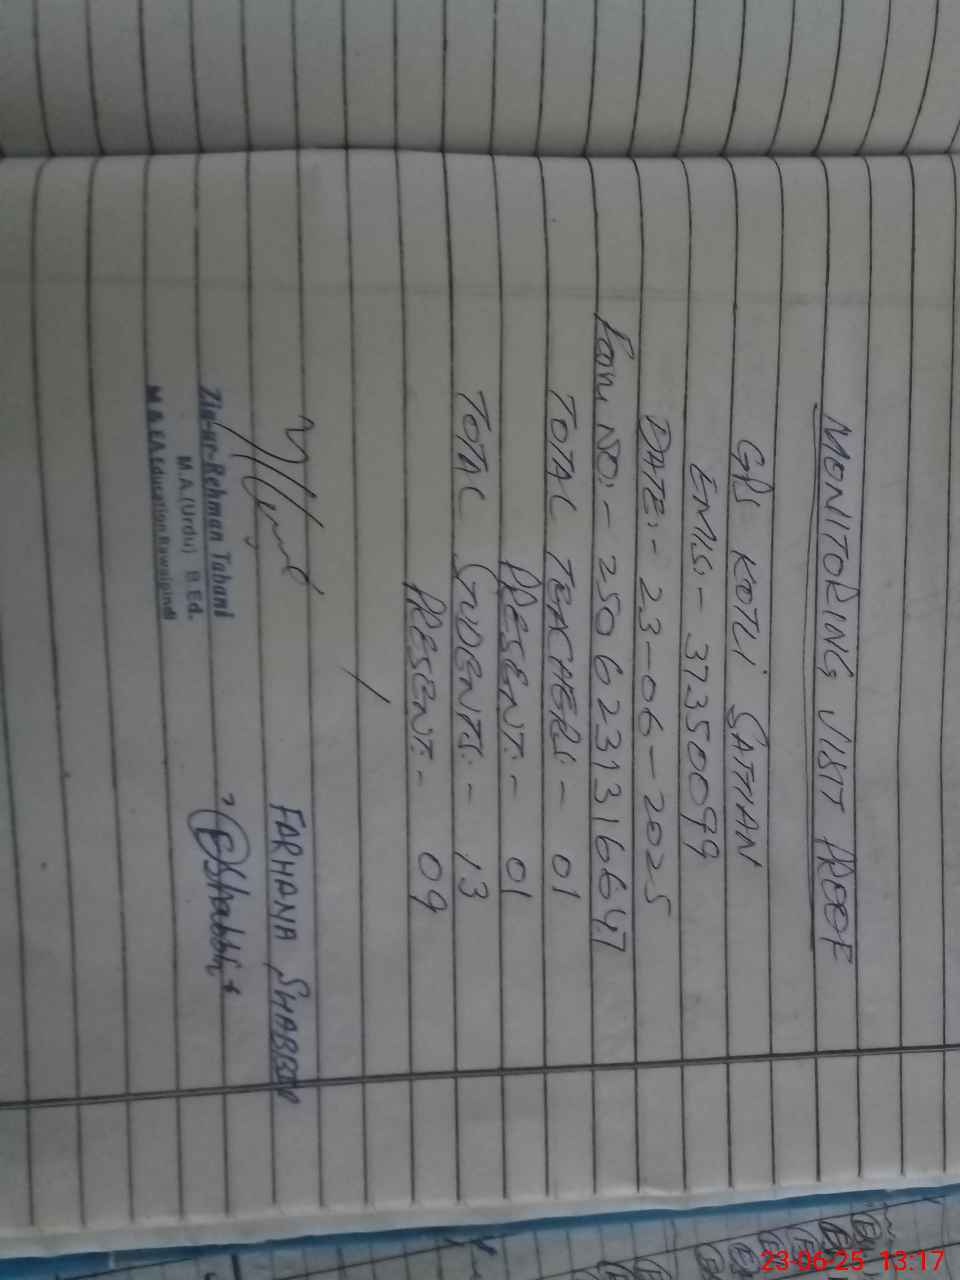 MONITORING VISIT PROOF
GPS KOTLI SATHAN
EMIS:- 37350099
DATE:- 23-06-2025
FORM NO:- 250623131664
TOTAL TEACHERS:- 01
PRESENT:- 01
TOTAL STUDENTS:- 13
PRESENT:- 09
FARHANA SHABBIR
Zia-ur-Rehman Tabani
M.A.(Urdu) B.Ed.
M.A.EA.Education Rawalpindi
23-06-25 13:17